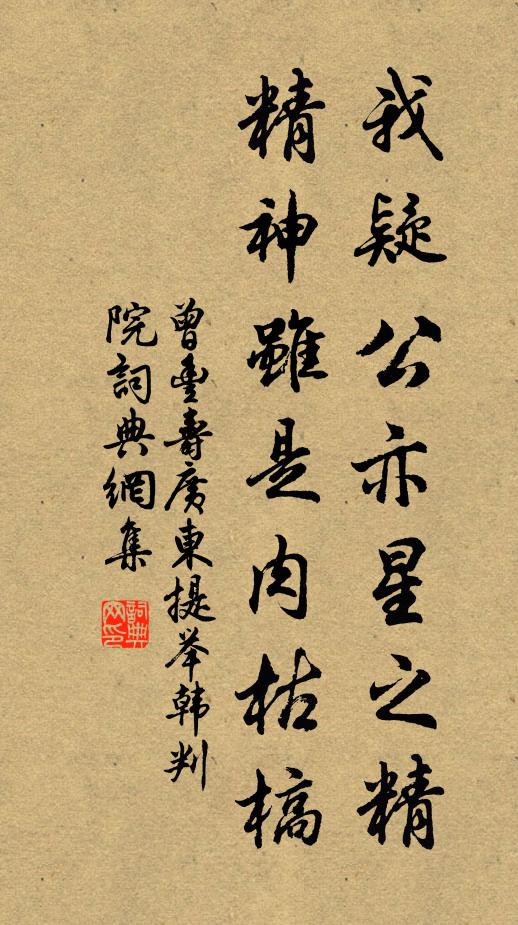 我疑公亦星之精
精神雖是肉枯槁
曾豐壽廣東提举韩判
院詞典網集
詞典网印